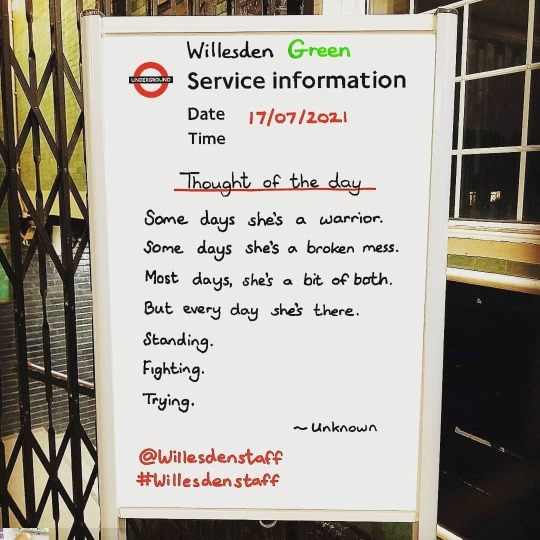 Willesden Green
UNDERGROUND
Service information
Date 17/07/2021
Time
Thought of the day
Some days she's a warrior.
Some days she's a broken mess.
Most days, she's a bit of both.
But every day she's there.
Standing.
Fighting.
Trying.
~ Unknown
@Willesdenstaff
#Willesdenstaff